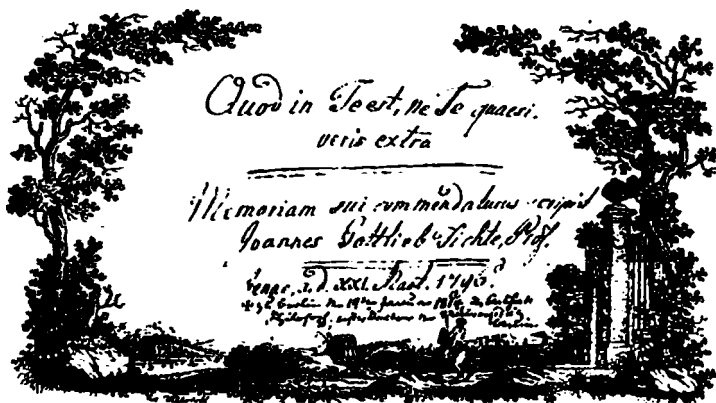 Quod in Te est, ne Te quaesi-
veris extra
Memoriam sui commendaturus scripsit
Joannes Gottlieb Fichte, Prof.
Jenae, d. XXI. Mart. 1795.
Berlin
Berlin